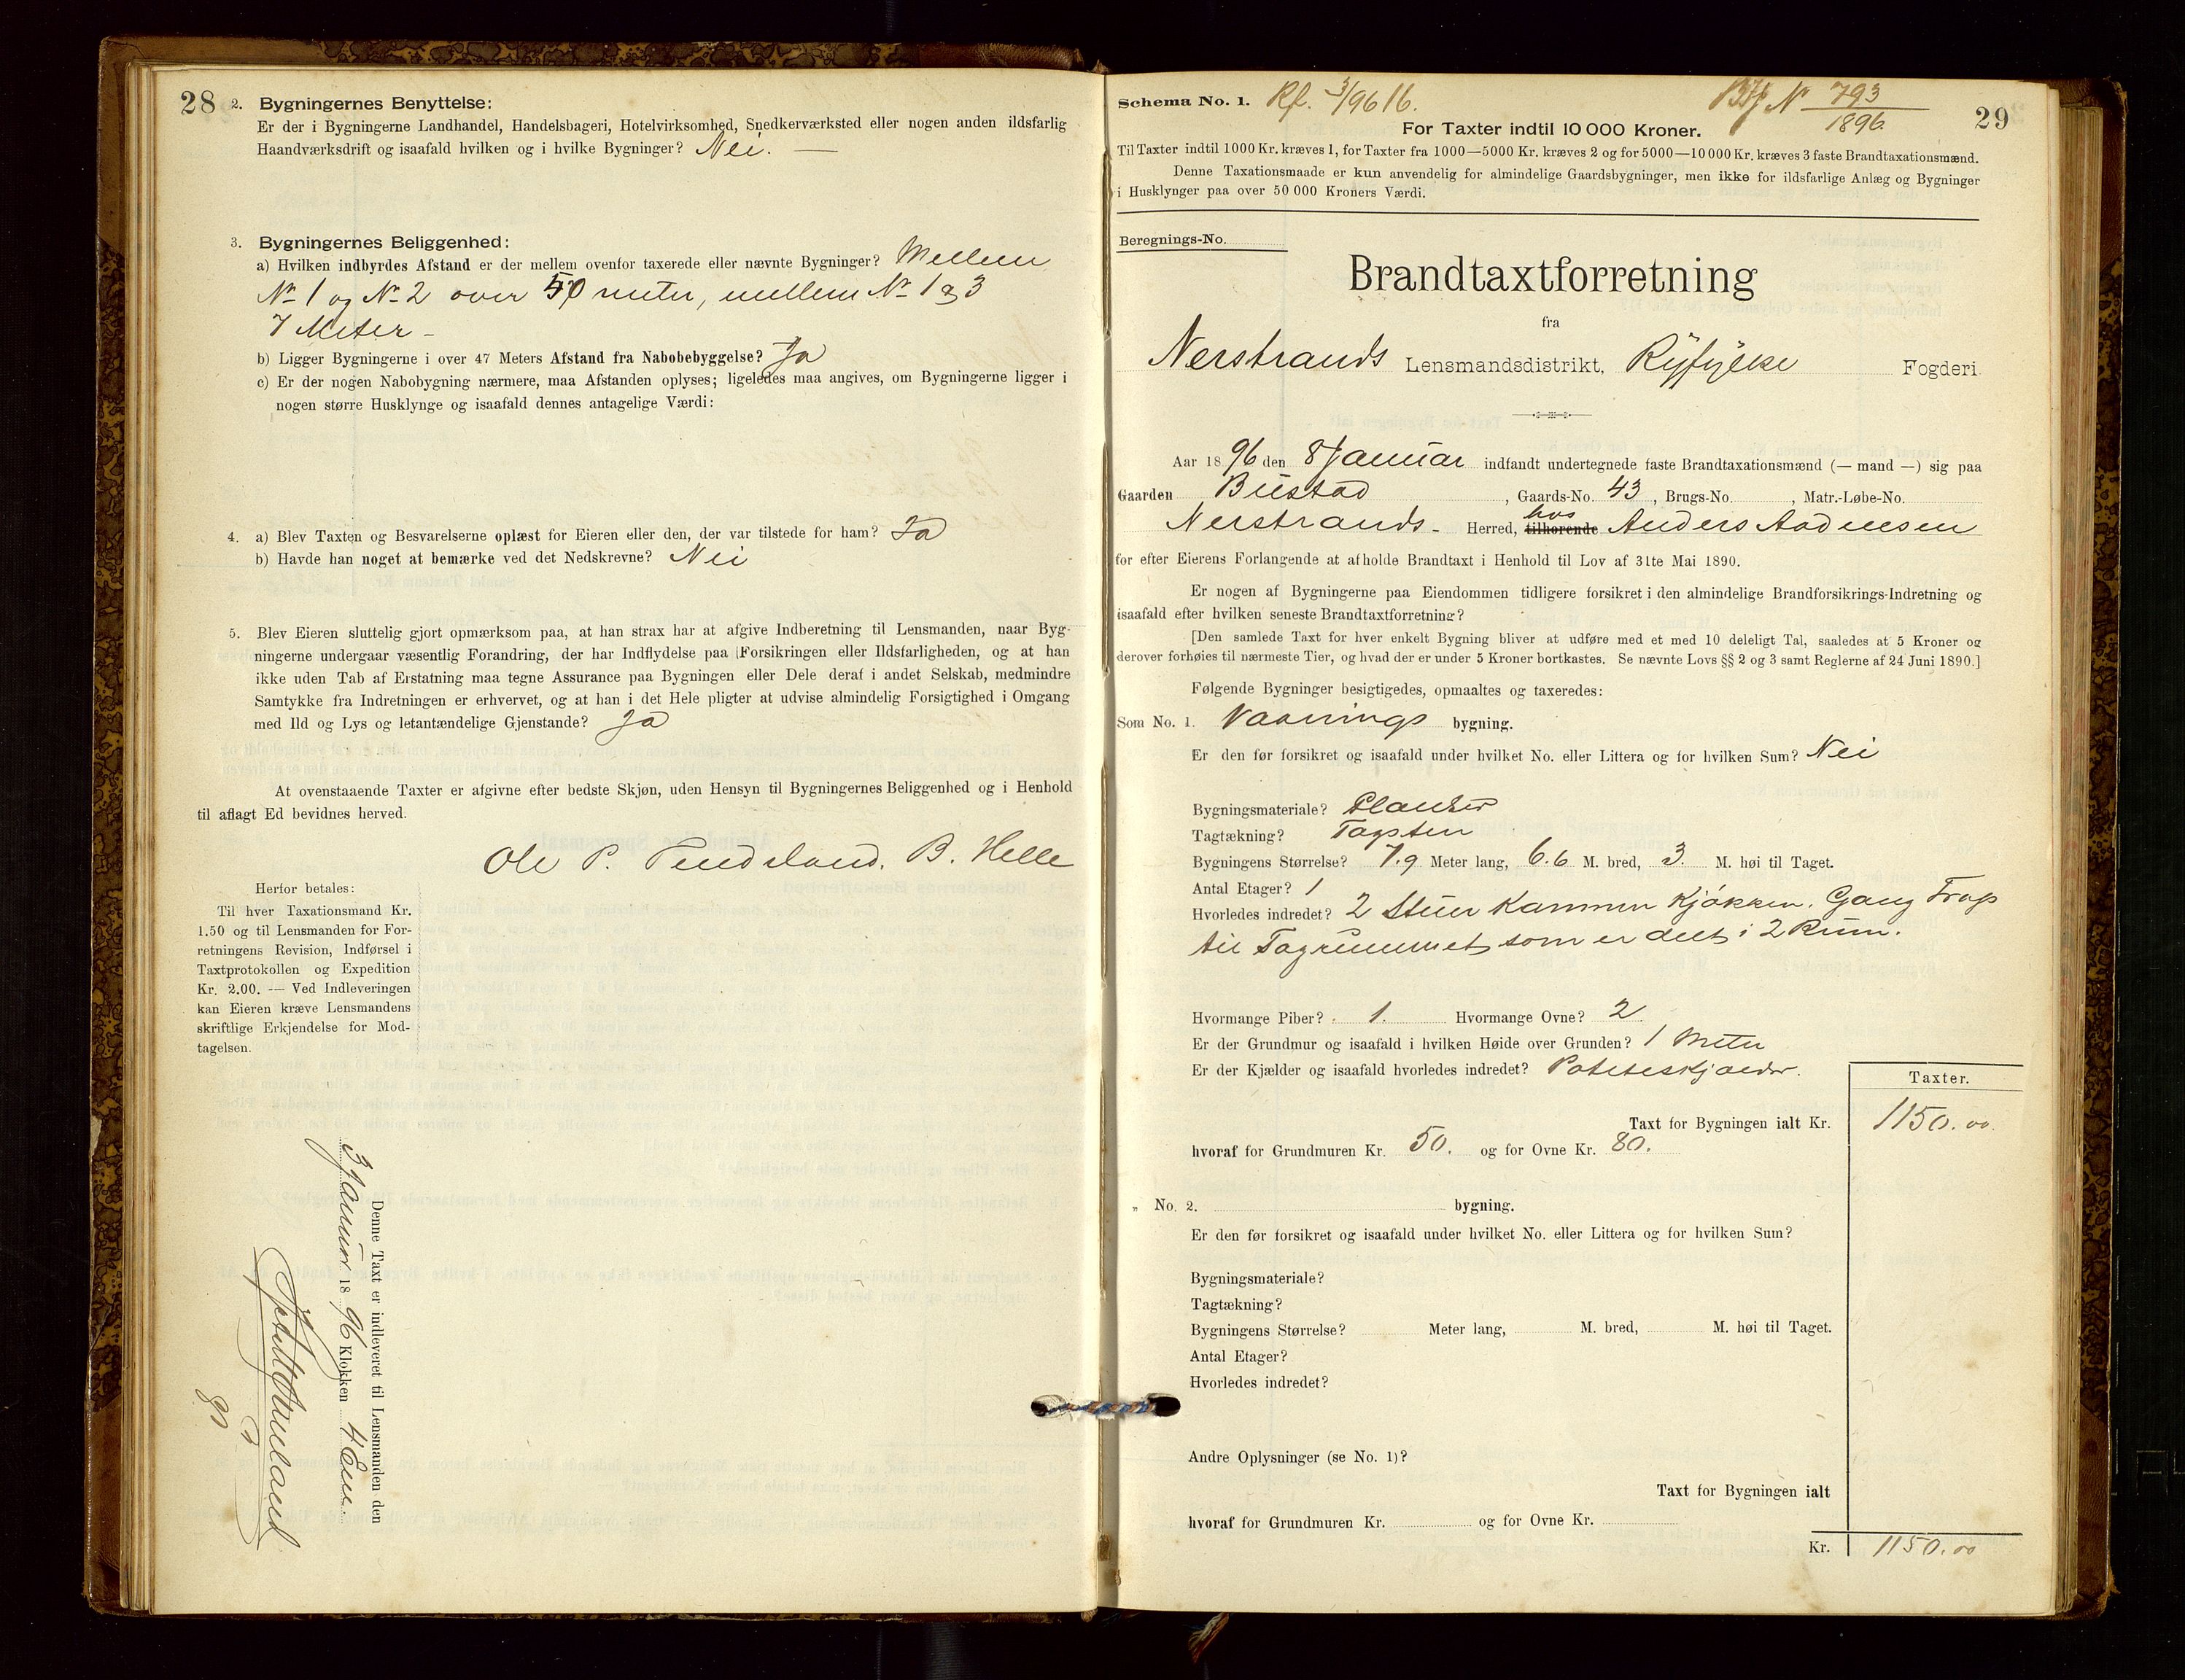 28
2. Bygningernes Benyttelse:
Er der i Bygningerne Landhandel, Handelsbageri, Hotelvirksomhed, Snedkerværksted eller nogen anden ildsfarlig
Haandværksdrift og isaafald hvilken og i hvilke Bygninger? Nei. —
3. Bygningernes Beliggenhed:
a) Hvilken indbyrdes Afstand er der mellem ovenfor taxerede eller nævnte Bygninger? Mellem
No 1 og No 2 over 50 meter, mellem No 1 og 3
7 Meter –
b) Ligger Bygningerne i over 47 Meters Afstand fra Nabobebyggelse? Ja
c) Er der nogen Nabobygning nærmere, maa Afstanden oplyses; ligeledes maa angives, om Bygningerne ligger i
nogen større Husklynge og isaafald dennes antagelige Værdi:
4. a) Blev Taxten og Besvarelserne oplæst for Eieren eller den, der var tilstede for ham? Ja
b) Havde han noget at bemærke ved det Nedskrevne? Nei
5. Blev Eieren sluttelig gjort opmærksom paa, at han strax har at afgive Indberetning til Lensmanden, naar Byg-
ningerne undergaar væsentlig Forandring, der har Indflydelse paa Forsikringen eller Ildsfarligheden, og at han
ikke uden Tab af Erstatning maa tegne Assurance paa Bygningen eller Dele deraf i andet Selskab, medmindre
Samtykke fra Indretningen er erhvervet, og at han i det Hele pligter at udvise almindelig Forsigtighed i Omgang
med Ild og Lys og letantændelige Gjenstande? Ja
At ovenstaaende Taxter er afgivne efter bedste Skjøn, uden Hensyn til Bygningernes Beliggenhed og i Henhold
til aflagt Ed bevidnes herved.
Ole P. B. Helle
Herfor betales:
Til hver Taxationsmand Kr.
1.50 og til Lensmanden for For-
retningens Revision, Indførsel i
Taxtprotokollen og Expedition
Kr. 2.00. — Ved Indleveringen
kan Eieren kræve Lensmandens
skriftlige Erkjendelse for Mod-
tagelsen.
Denne Taxt er indleveret til Lensmanden den
3 Januar 1896 Klokken 4 Em.
29
Schema No. 1. Rfl. 3/96 16. No 793
1896
For Taxter indtil 10 000 Kroner.
Til Taxter indtil 1000 Kr. kræves 1, for Taxter fra 1000—5000 Kr. kræves 2 og for 5000—10 000 Kr. kræves 3 faste Brandtaxationsmænd.
Denne Taxationsmaade er kun anvendelig for almindelige Gaardsbygninger, men ikke for ildsfarlige Anlæg og Bygninger
i Husklynger paa over 50 000 Kroners Værdi.
Beregnings-No.
Brandtaxtforretning
fra
Nerstrands Lensmandsdistrikt, Ryfylke Fogderi
Aar 1896 den 8 Januar indfandt undertegnede faste Brandtaxationsmænd (— mand —) sig paa
Gaarden Bustad, Gaards-No. 43, Brugs-No. , Matr.-Løbe-No.
Nerstrands - Herred, tilhørende hos Anders Aadnesen
for efter Eierens Forlangende at afholde Brandtaxt i Henhold til Lov af 31te Mai 1890.
Er nogen af Bygningerne paa Eiendommen tidligere forsikret i den almindelige Brandforsikrings-Indretning og
isaafald efter hvilken seneste Brandtaxtforretning?
[Den samlede Taxt for hver enkelt Bygning bliver at udføre med et med 10 deleligt Tal, saaledes at 5 Kroner og
derover forhøies til nærmeste Tier, og hvad der er under 5 Kroner bortkastes. Se nævnte Lovs §§ 2 og 3 samt Reglerne af 24 Juni 1890.]
Følgende Bygninger besigtigedes, opmaaltes og taxeredes:
Som No. 1. Vaanings bygning.
Er den før forsikret og isaafald under hvilket No. eller Littera og for hvilken Sum? Nei
Bygningsmateriale? Planker
Tagtækning? Tagsten
Bygningens Størrelse? 7.9 Meter lang, 6.6 M. bred, 3. M. høi til Taget.
Antal Etager? 1
Hvorledes indredet? 2 Stuer Kammer Kjøkken. Gang Trap
til Tagrummet som er delt i 2 Rum.
Hvormange Piber? 1. Hvormange Ovne? 2
Er der Grundmur og isaafald i hvilken Høide over Grunden? 1 Meter
Er der Kjælder og isaafald hvorledes indredet? Poteteskjælder.
Taxter.
Taxt for Bygningen ialt Kr. 1150.00.
hvoraf for Grundmuren Kr. 50. og for Ovne Kr. 80.
" No. 2. bygning.
Er den før forsikret og isaafald under hvilket No. eller Littera og for hvilken Sum?
Bygningsmateriale?
Tagtækning?
Bygningens Størrelse? Meter lang, M. bred, M. høi til Taget.
Antal Etager?
Hvorledes indredet?
Andre Oplysninger (se No. 1)?
Taxt for Bygningen ialt
hvoraf for Grundmuren Kr. og for Ovne Kr.
Kr. 1150.00